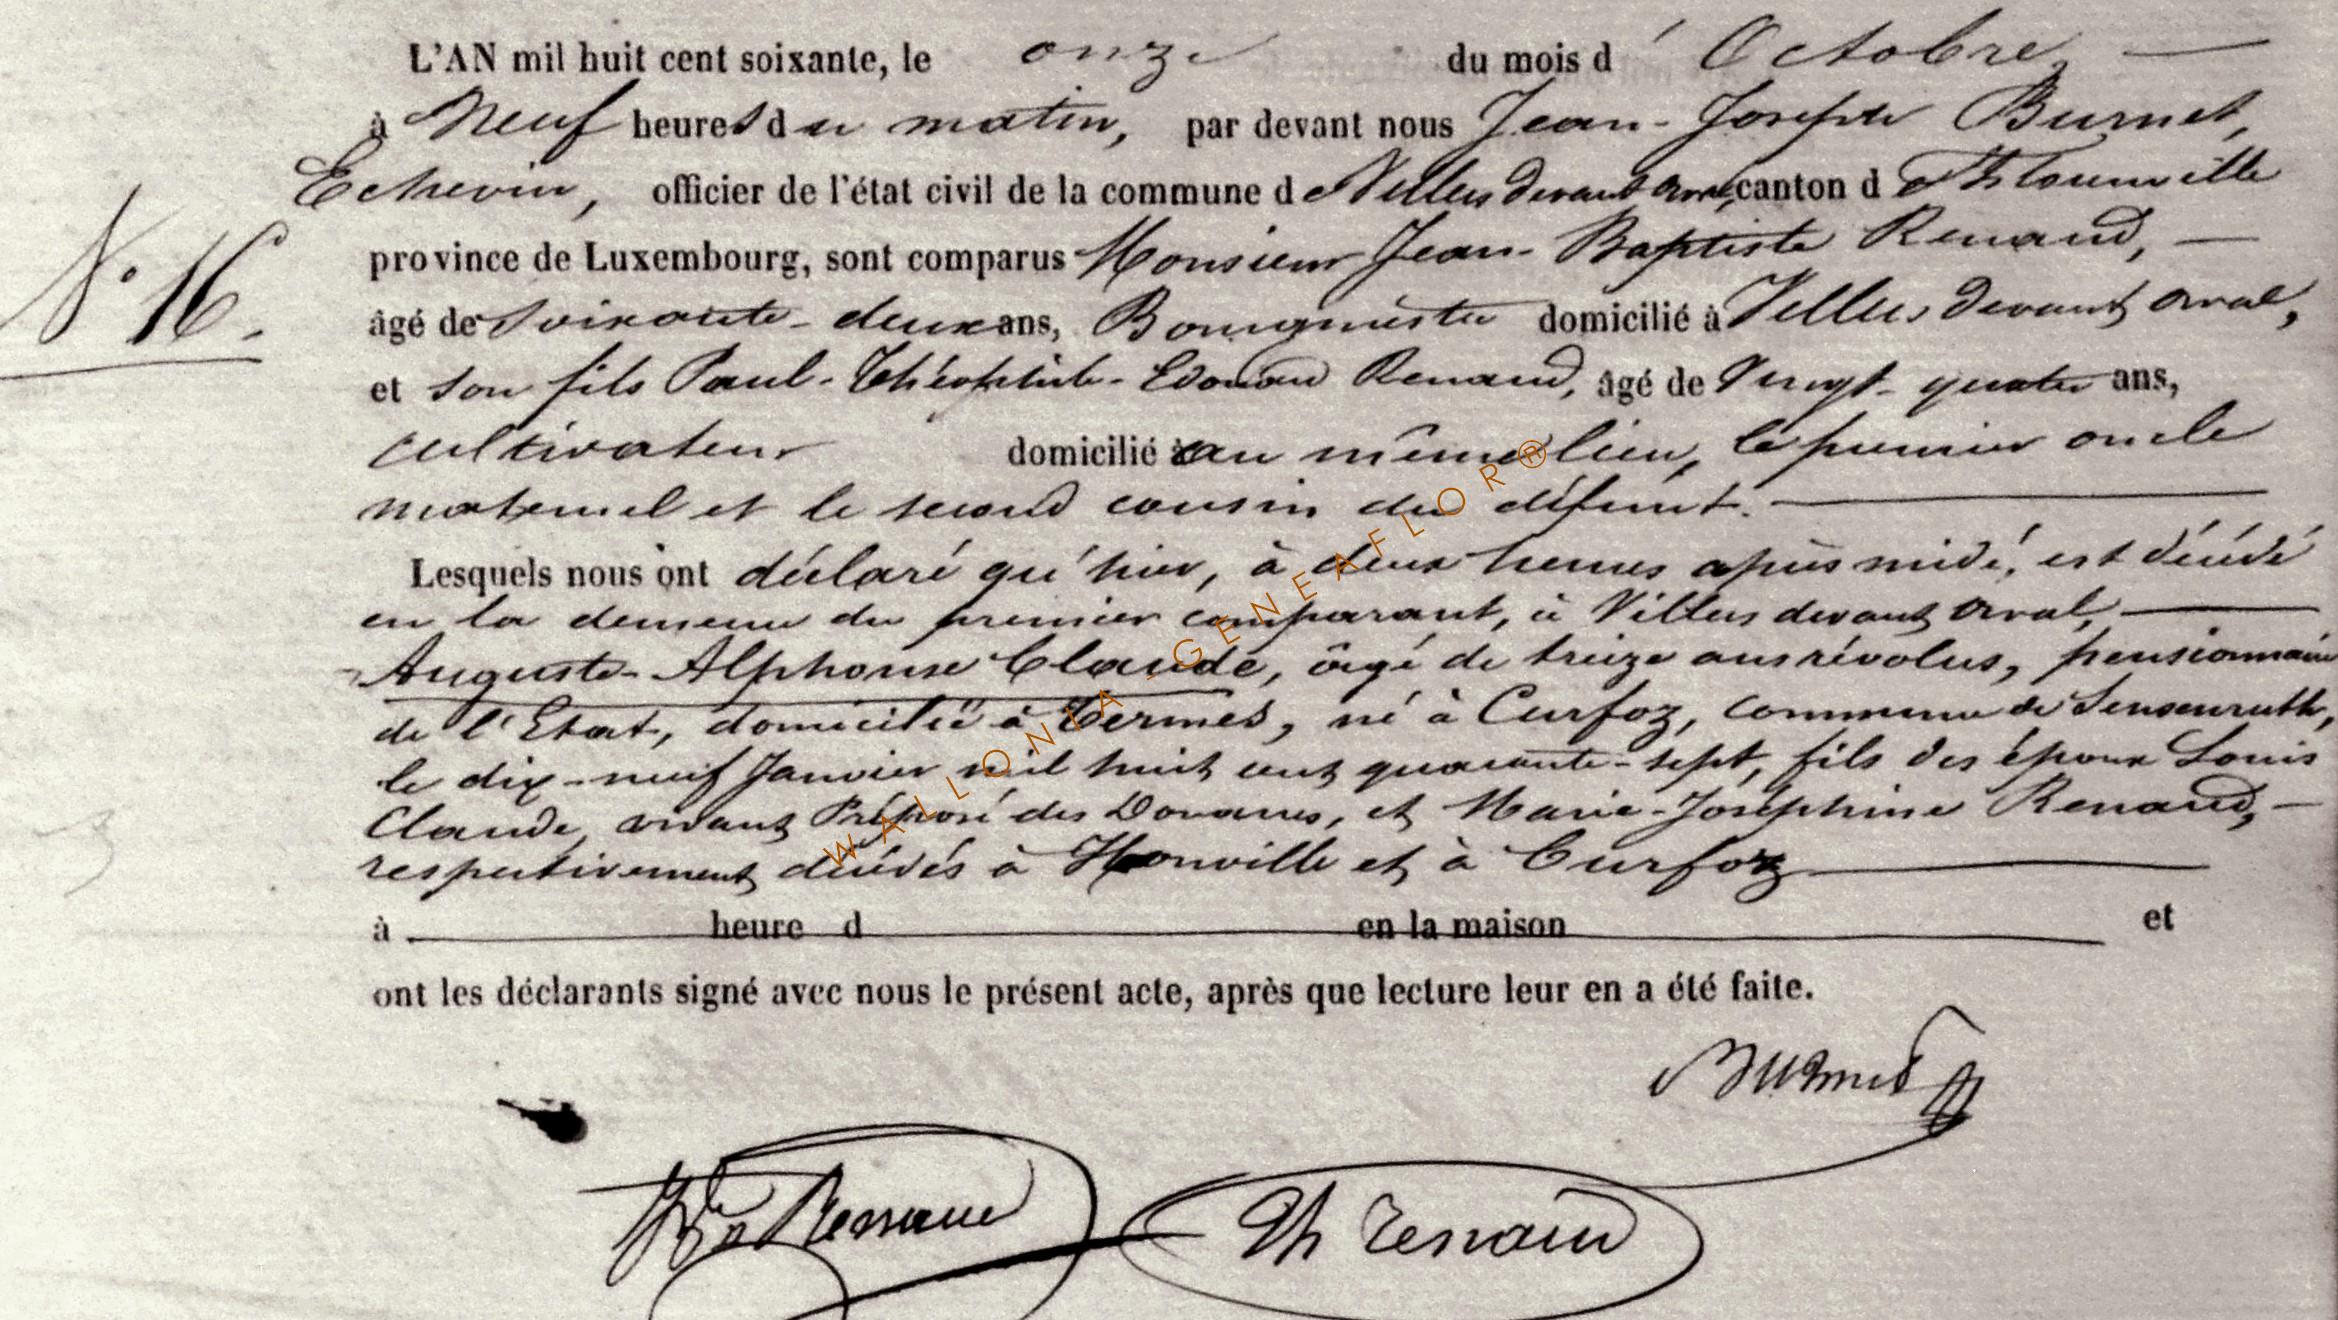 L'AN mil huit cent soixante, le onze du mois d'Octobre
à Neuf heures du matin, par devant nous Jean-Joseph Burnet,
Echevin, officier de l'état civil de la commune de Villers devant orval, canton de Florenville
N° 16.
province de Luxembourg, sont comparus Monsieur Jean-Baptiste Renaud,
âgé de soixante-deux ans, Bourgmestre domicilié à Villers devant orval,
et son fils Paul-Théophile-Edouard Renaud, âgé de Vingt-quatre ans,
cultivateur domicilié au même lieu, le premier oncle
maternel et le second cousin du défunt.
Lesquels nous ont déclaré qu'hier, à deux heures après midi, est décédé
en la demeure du premier comparant, à Villers devant orval,
Auguste-Alphonse Claude, âgé de treize ans révolus, pensionnaire
de l'Etat, domicilié à Termes, né à Curfoz, commune de Sensenruth,
le dix-neuf Janvier mil huit cent quarante-sept, fils des époux Louis
Claude, vivant Préposé des Douanes, et Marie-Joséphine Renaud,
respectivement décédés à Honville et à Curfoz
à heure d en la maison et
ont les déclarants signé avec nous le présent acte, après que lecture leur en a été faite.
Burnet
Renaud
Th Renaud
WALLONIA-GENEAFLOR®